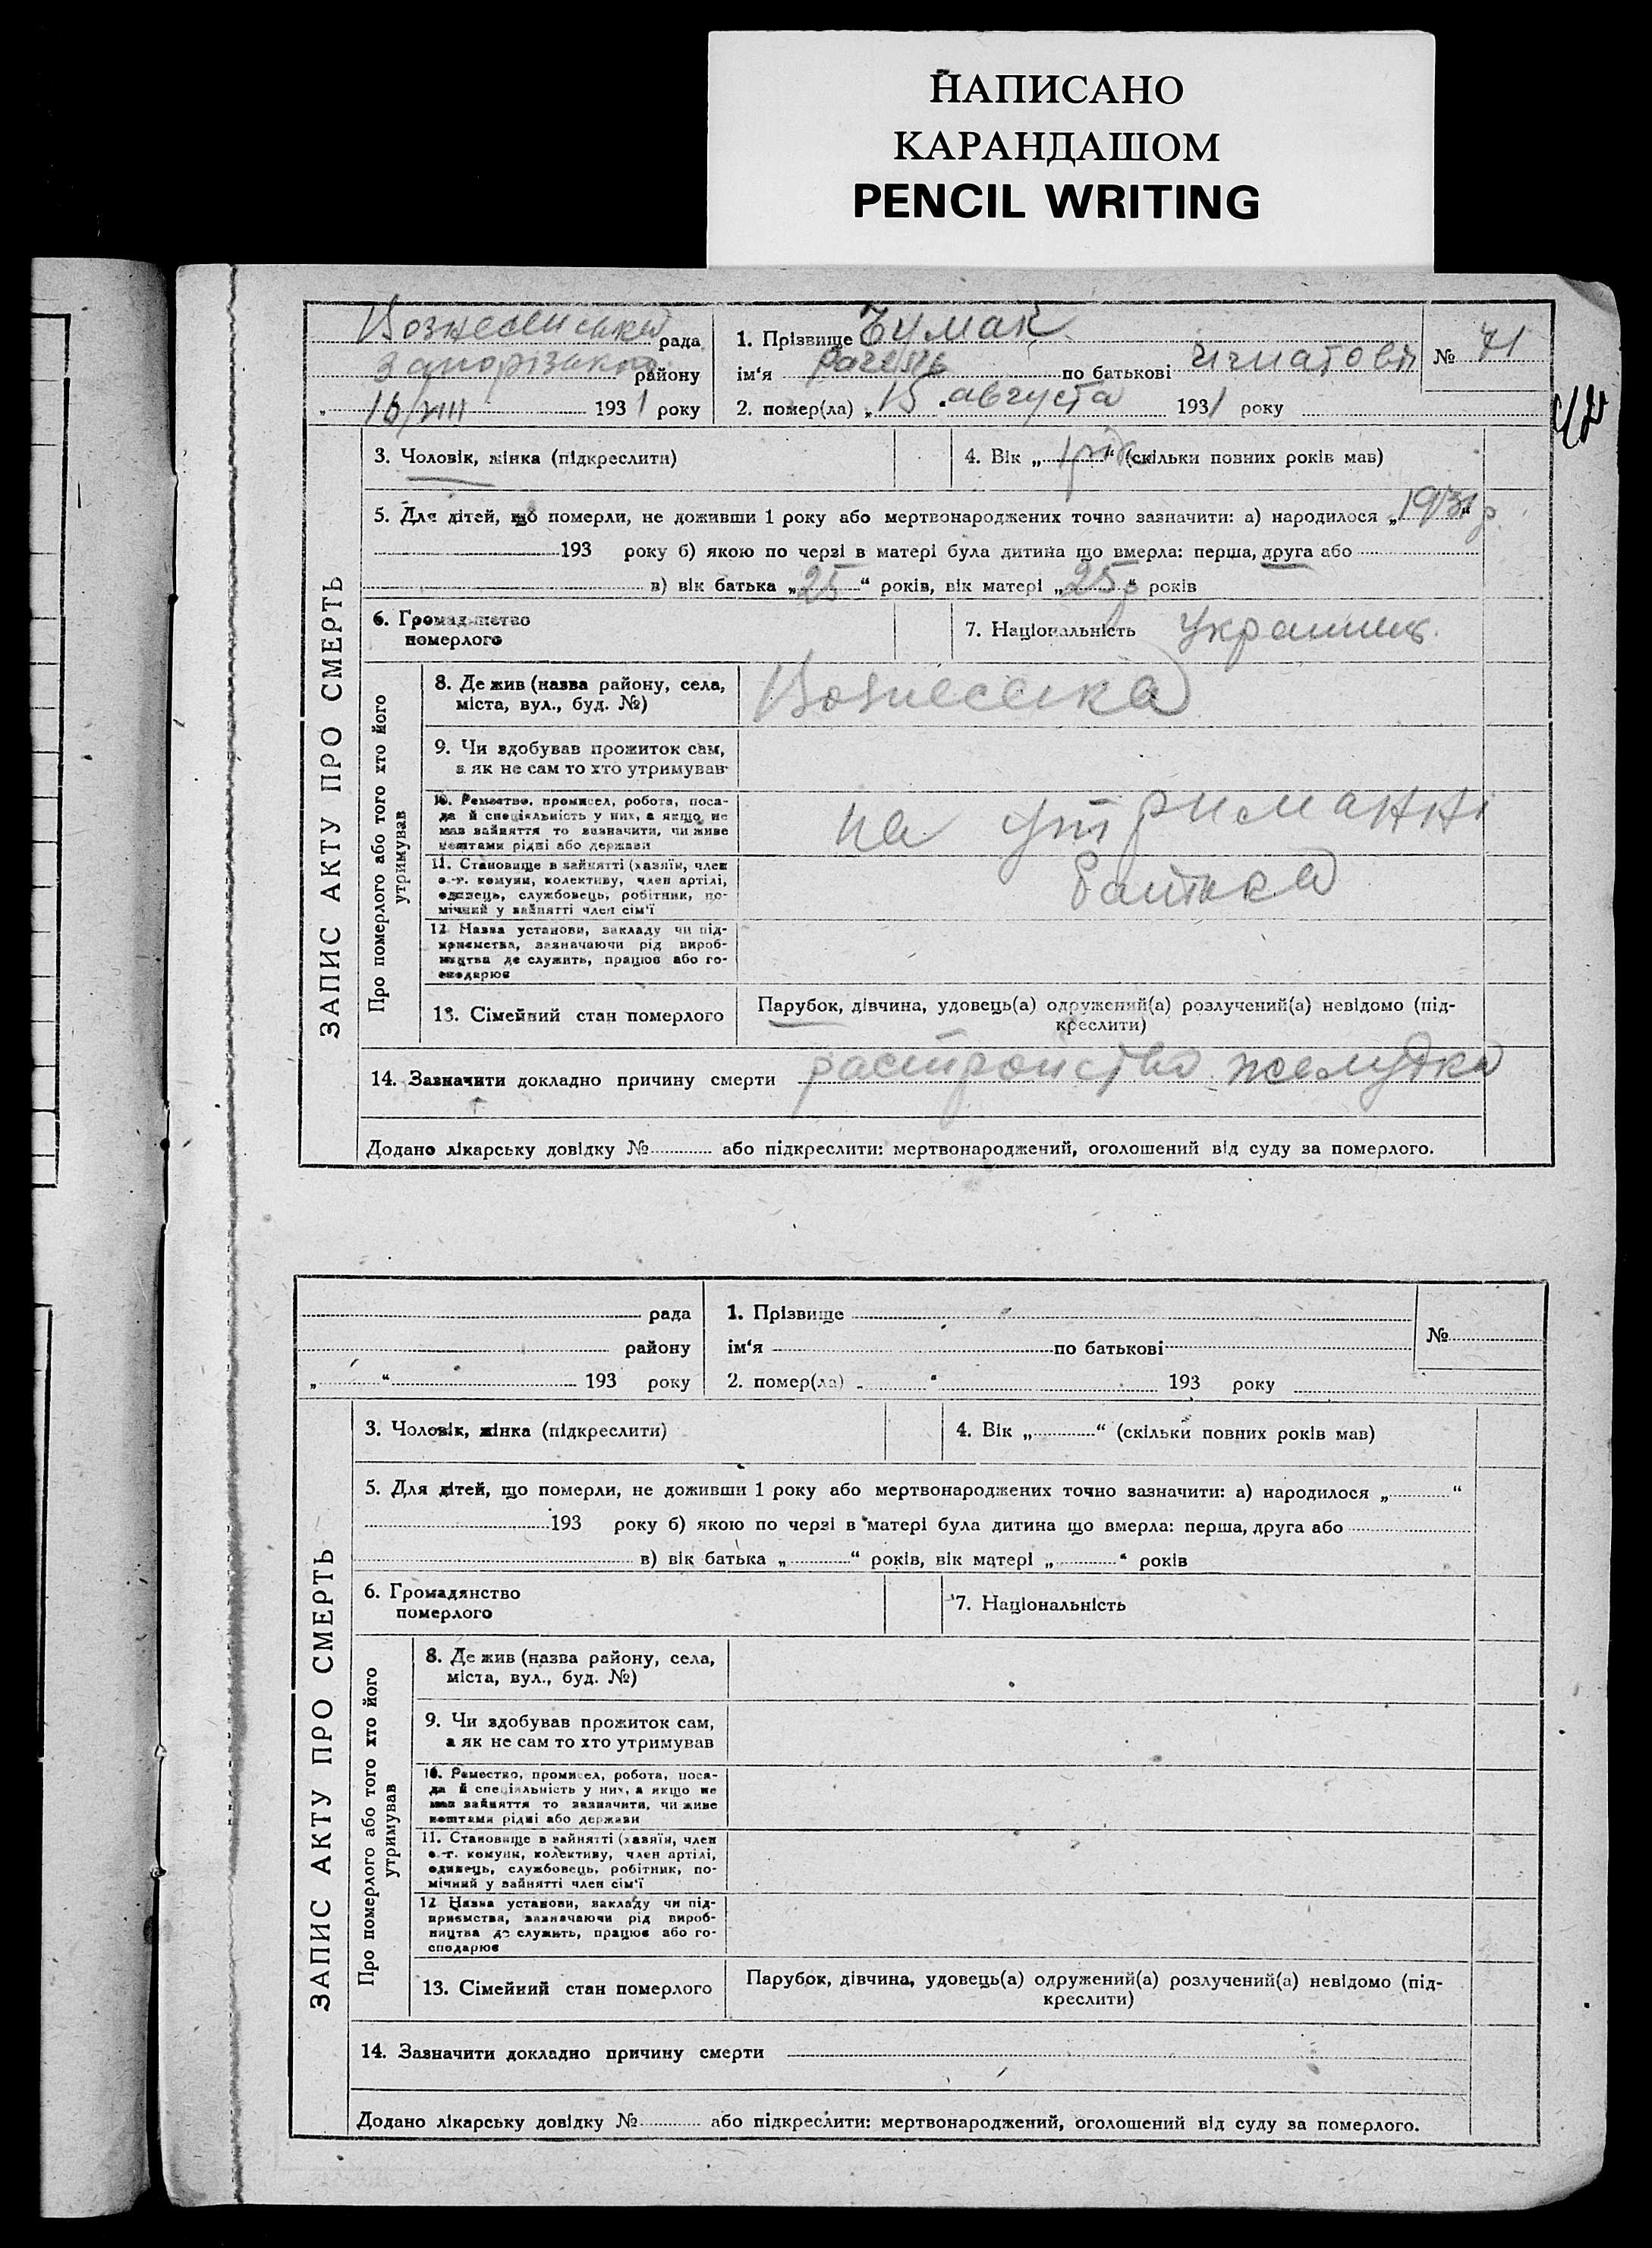 НАПИСАНО
КАРАНДАШОМ
PENCIL WRITING
Вознесенська рада
Запорізького району
16/VIII 1931 року
1. Прізвище Чумак
ім'я по батькові Игнатовіч
№ 71
2. помер(ла) „15 " августа 1931 року
42
ЗАПИС АКТУ ПРО СМЕРТЬ
3. Чоловік, жінка (підкреслити)
4. Вік „1 рік" (скільки повних років мав)
5. Для дітей, що померли, не доживши 1 року або мертвонароджених точно зазначити: а) народилося „1931 р.
193 року б) якою по черзі в матері була дитина що вмерла: перша, друга або
в) вік батька „25" років, вік матері „25 р" років
6. Громадянство
померлого
7. Національність Украинец
Про померлого або того хто його
утримував
8. Де жив (назва району, села,
міста, вул., буд. №)
Вознесенка
9. Чи здобував прожиток сам,
а як не сам то хто утримував
10. Ремество, промисел, робота, поса-
да й спеціяльність у них, а якщо не
мав зайняття то зазначити, чи живе
коштами рідні або держави
на утриманні
11. Становище в зайнятті (хазяїн, член
с.-г. комуни, колективу, член артілі,
одинець, службовець, робітник, по-
мічний у зайнятті член сім'ї
батька
12 Назва установи, закладу чи під-
приємства, зазначаючи рід вироб-
ництва де служить, працює або го-
сподарює
13. Сімейний стан померлого
Парубок, дівчина, удовець(а) одружений(а) розлучений(а) невідомо (під-
креслити)
14. Зазначити докладно причину смерти растройство желудка
Додано лікарську довідку № або підкреслити: мертвонароджений, оголошений від суду за померлого.
рада
району
„ " 193 року
1. Прізвище
ім'я по батькові
№
2. помер(ла) „ " 193 року
ЗАПИС АКТУ ПРО СМЕРТЬ
3. Чоловік, жінка (підкреслити)
4. Вік „ " (скільки повних років мав)
5. Для дітей, що померли, не доживши 1 року або мертвонароджених точно зазначити: а) народилося „ "
193 року б) якою по черзі в матері була дитина що вмерла: перша, друга або
в) вік батька „ " років, вік матері „ " років
6. Громадянство
померлого
7. Національність
Про померлого або того хто його
утримував
8. Де жив (назва району, села,
міста, вул., буд. №)
9. Чи здобував прожиток сам,
а як не сам то хто утримував
10. Ремество, промисел, робота, поса-
да й спеціяльність у них, а якщо не
мав зайняття то зазначити, чи живе
коштами рідні або держави
11. Становище в зайнятті (хазяїн, член
с.-г. комуни, колективу, член артілі,
одинець, службовець, робітник, по-
мічний у зайнятті член сім'ї
12 Назва установи, закладу чи під-
приємства, зазначаючи рід вироб-
ництва де служить, працює або го-
сподарює
13. Сімейний стан померлого
Парубок, дівчина, удовець(а) одружений(а) розлучений(а) невідомо (під-
креслити)
14. Зазначити докладно причину смерти
Додано лікарську довідку № або підкреслити: мертвонароджений, оголошений від суду за померлого.